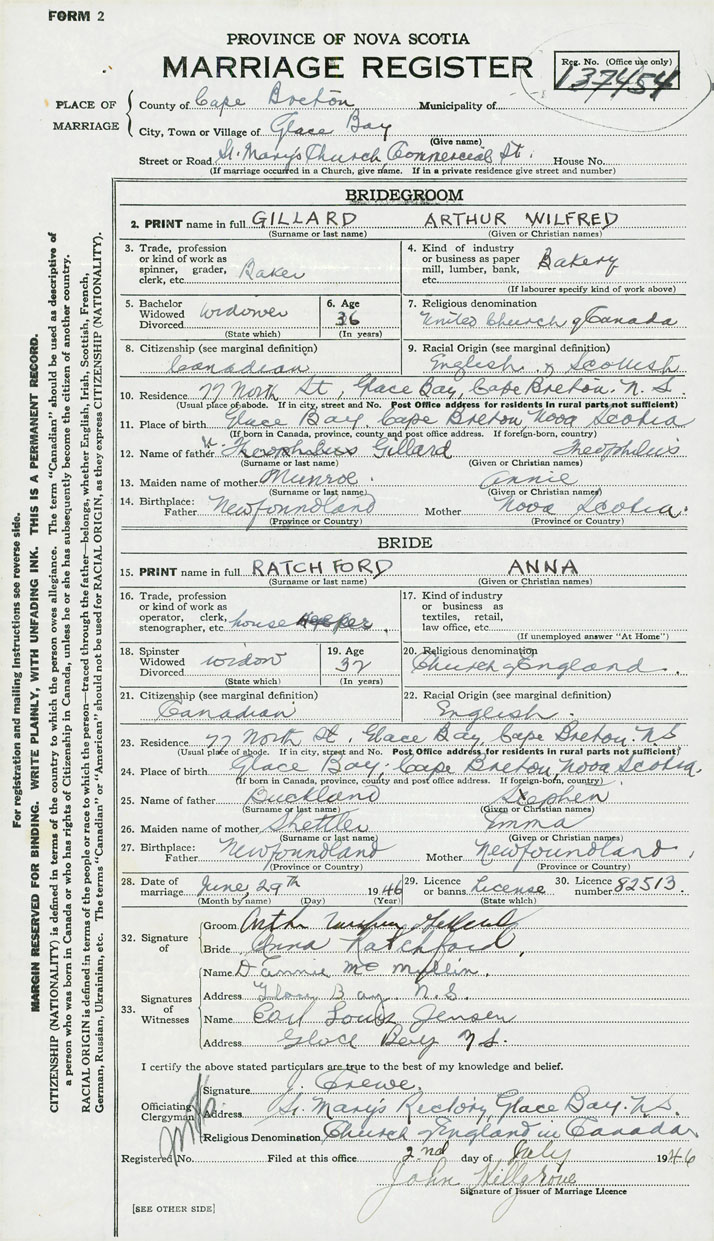 FORM 2
PROVINCE OF NOVA SCOTIA
MARRIAGE REGISTER
Reg. No. (Office use only)
137454
PLACE OF MARRIAGE
County of Cape Breton Municipality of
City, Town or Village of Glace Bay
(Give name)
Street or Road St. Mary's Church, Commercial St. House No.
(If marriage occurred in a Church, give name. If in a private residence give street and number)
BRIDEGROOM
2. PRINT name in full GILLARD ARTHUR WILFRED
(Surname or last name) (Given or Christian names)
3. Trade, profession or kind of work as spinner, grader, clerk, etc. Baker
4. Kind of industry or business as paper mill, lumber, bank, etc. Bakery
(If labourer specify kind of work above)
5. Bachelor Widowed Divorced widower
(State which)
6. Age 36
(In years)
7. Religious denomination
United Church of Canada
8. Citizenship (see marginal definition)
Canadian
9. Racial Origin (see marginal definition)
English & Scottish
10. Residence 77 North St, Glace Bay, Cape Breton. N. S
(Usual place of abode. If in city, street and No. Post Office address for residents in rural parts not sufficient)
11. Place of birth Glace Bay, Cape Breton Nova Scotia
(If born in Canada, province, county and post office address. If foreign-born, country)
12. Name of father Theophilus Gillard Theophilus
(Surname or last name) (Given or Christian names)
13. Maiden name of mother Munroe Annie
(Surname or last name) (Given or Christian names)
14. Birthplace: Father Newfoundland Mother Nova Scotia.
(Province or Country) (Province or Country)
BRIDE
15. PRINT name in full RATCHFORD ANNA
(Surname or last name) (Given or Christian names)
16. Trade, profession or kind of work as operator, clerk, stenographer, etc. house keeper
17. Kind of industry or business as textiles, retail, law office, etc.
(If unemployed answer "At Home")
18. Spinster Widowed Divorced widow
(State which)
19. Age 32
(In years)
20. Religious denomination
Church of England.
21. Citizenship (see marginal definition)
Canadian
22. Racial Origin (see marginal definition)
English.
23. Residence 77 North St. Glace Bay, Cape Breton. N.S
(Usual place of abode. If in city, street and No. Post Office address for residents in rural parts not sufficient)
24. Place of birth Glace Bay, Cape Breton, Nova Scotia.
(If born in Canada, province, county and post office address. If foreign-born, country)
25. Name of father Buckland Stephen
(Surname or last name) (Given or Christian names)
26. Maiden name of mother Emma
(Surname or last name) (Given or Christian names)
27. Birthplace: Father Newfoundland Mother Newfoundland,
(Province or Country) (Province or Country)
28. Date of marriage June, 29th 1946
(Month by name) (Day) (Year)
29. Licence or banns License
(State which)
30. Licence number 82513.
32. Signature of
Groom Arthur Gillard
Bride Anna Ratchford
33. Signatures of Witnesses
Name
Address Glace Bay. N.S.
Name Earl Louis Jensen
Address Glace Bay N.S.
I certify the above stated particulars are true to the best of my knowledge and belief.
Officiating Clergyman
Signature J. Crewe.
Address St. Mary's Rectory, Glace Bay. N.S.
Religious Denomination Church of England in Canada
Registered No. Filed at this office 2nd day of July 1946
John Hillgrove
Signature of Issuer of Marriage Licence
[SEE OTHER SIDE]
For registration and mailing instructions see reverse side.
MARGIN RESERVED FOR BINDING. WRITE PLAINLY, WITH UNFADING INK. THIS IS A PERMANENT RECORD.
CITIZENSHIP (NATIONALITY) is defined in terms of the country to which the person owes allegiance. The term "Canadian" should be used as descriptive of
a person who was born in Canada or who has rights of Citizenship in Canada, unless he or she has subsequently become the citizen of another country.
RACIAL ORIGIN is defined in terms of the people or race to which the person—traced through the father—belongs, whether English, Irish, Scottish, French,
German, Russian, Ukrainian, etc. The terms "Canadian" or "American" should not be used for RACIAL ORIGIN, as they express CITIZENSHIP (NATIONALITY).